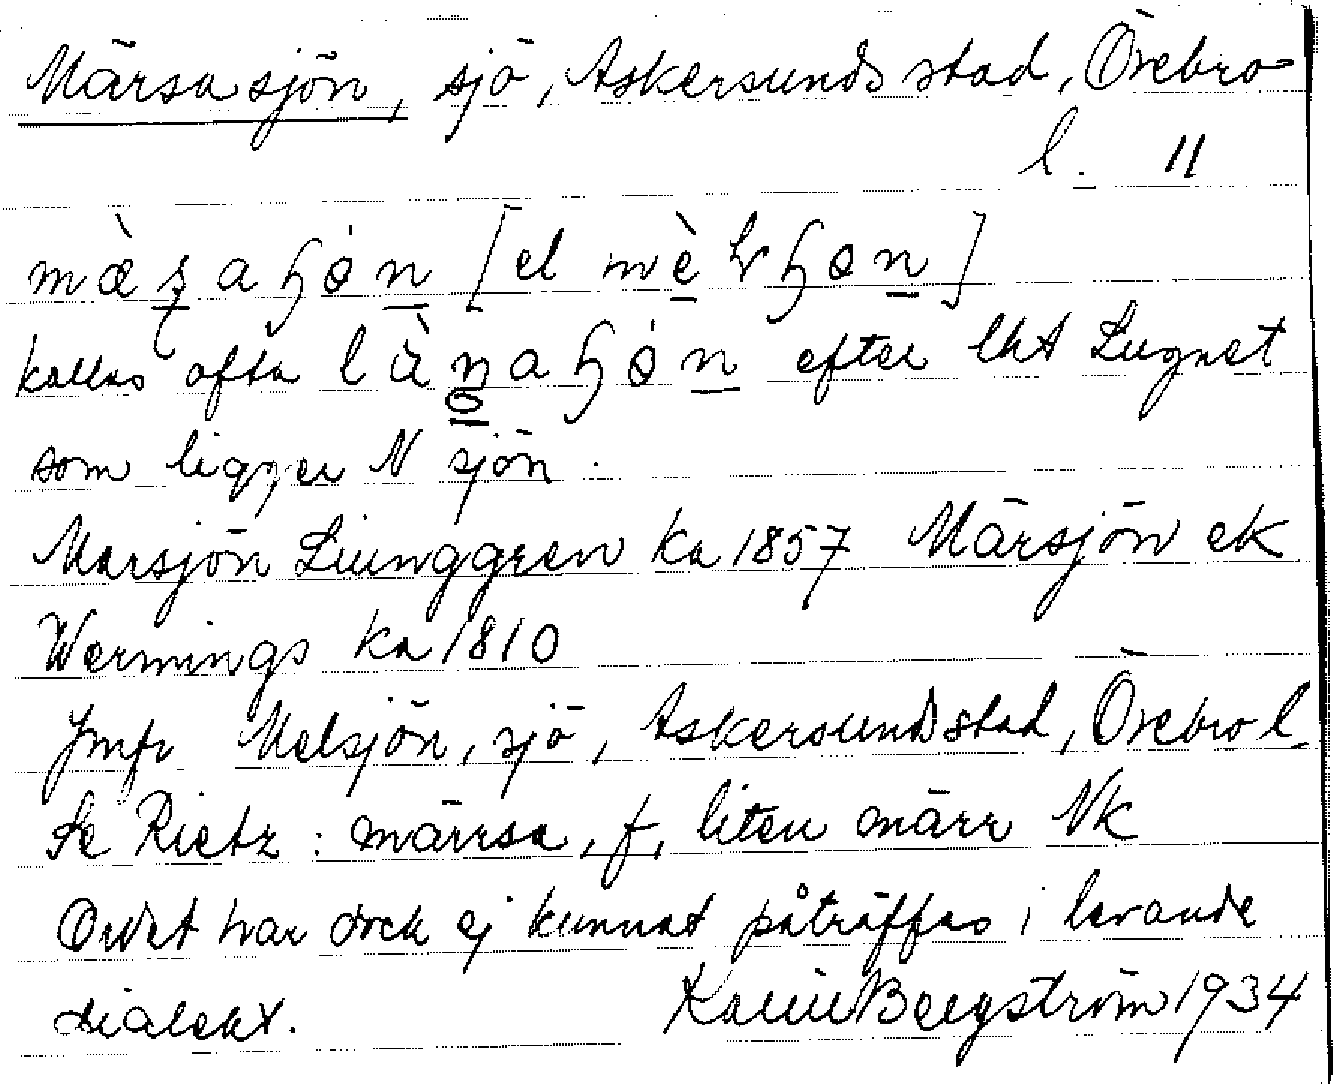 Märsasjön, sjö, Askersunds stad, Örebro
l. 11
mæ̀ʂaɧө́n [el mèkɧөn]
kallas ofta lùnaɧө́n efter lht Lugnet
som ligger N sjön.
Marsjön Liunggren ka 1857 Märsjön ek
Wermings ka 1810
Jmfr Melsjön, sjö, Askersunds stad, Örebro l.
Se Rietz: märrsa, f, liten märr Nk
Ordet har dock ej kunnat påträffas i levande
dialekt. Karin Bergström 1934